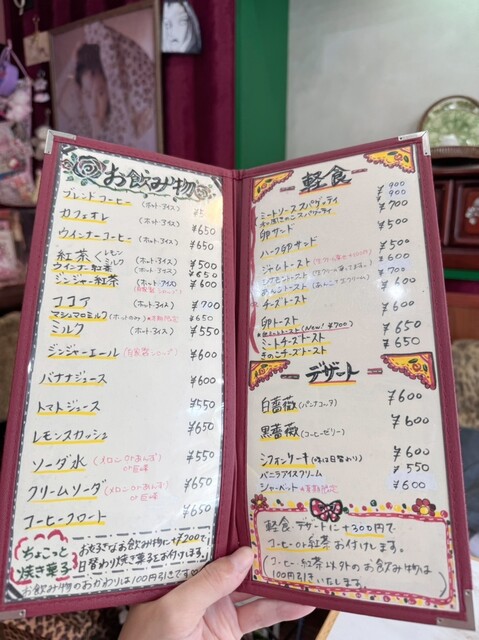 お飲み物
ブレンドコーヒー (ホット・アイス) ¥5
カフェオレ (ホット・アイス) ¥650
ウインナーコーヒー (ホット・アイス) ¥650
紅茶 レモン ミルク (ホット・アイス) ¥500
ウインナ紅茶 (ホット・アイス) ¥650
ジンジャー紅茶 (ホット・アイス) ¥600
(自家製シロップ)
ココア (ホット・アイス) ¥700
マシュマロミルク (ホットのみ)
ミルク (ホット・アイス) ¥550
ジンジャーエール (自家製シロップ) ¥600
バナナジュース ¥600
トマトジュース ¥550
レモンスカッシュ ¥650
ソーダ水 (メロン or あんず or 巨峰) ¥550
クリームソーダ (メロン or あんず or 巨峰) ¥650
コーヒーフロート ¥650
ちょこっと焼き菓子
お好きなお飲み物に+¥200で
日替わり焼き菓子をお付けします。
お飲み物のおかわりは100円引きです
軽食
ミートソーススパゲッティ ¥900
スパゲッティ ¥900
卵サンド ¥700
ハーフ卵サンド ¥500
ジャムトースト ¥500
シナモントースト ¥600
¥700
チーズトースト ¥600
卵トースト ¥650
(New! ¥700)
ミートチーズトースト ¥650
きのこチーズトースト ¥650
デザート
白薔薇 (パンナコッタ) ¥600
黒薔薇 (コーヒーゼリー) ¥600
シフォンケーキ (味は日替わり) ¥600
バニラアイスクリーム ¥550
シャーベット ¥600
軽食、デザートに+300円で
コーヒー or 紅茶 お付けします。
(コーヒー、紅茶以外のお飲み物は
100円引きいたします)